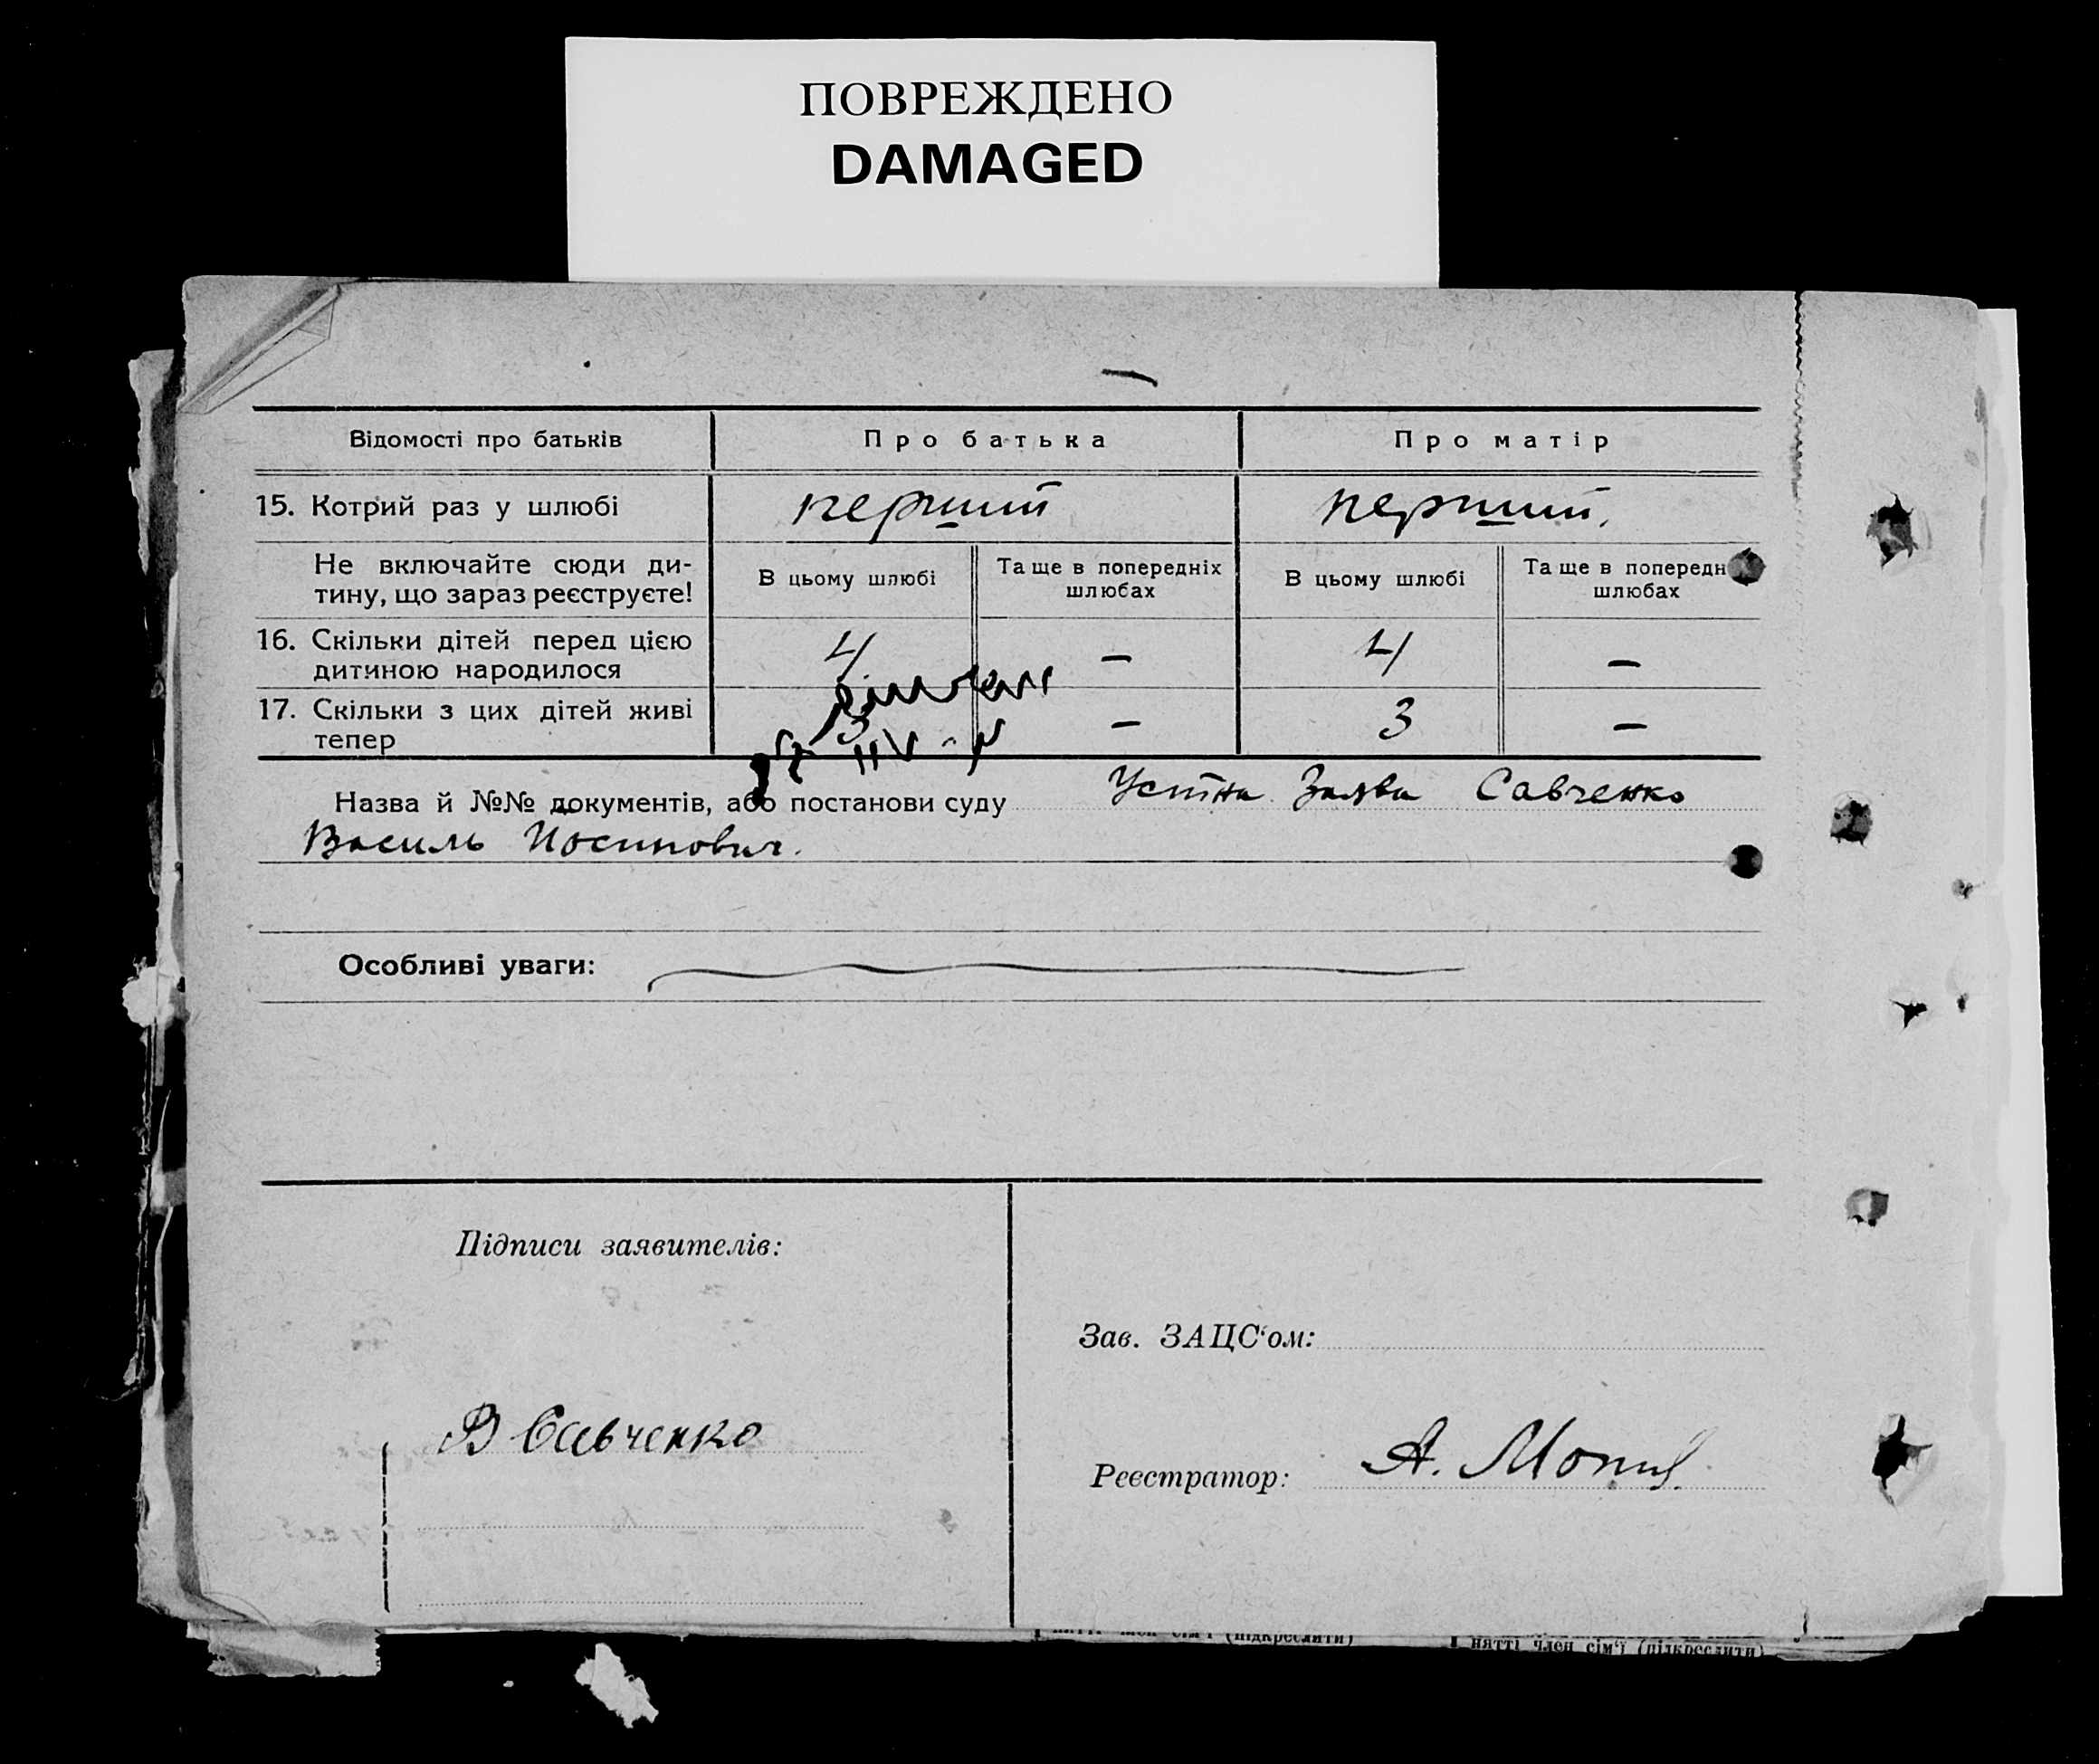 ПОВРЕЖДЕНО
DAMAGED
Відомості про батьків
Про батька
Про матір
15. Котрий раз у шлюбі
перший
перший.
Не включайте сюди ди-
тину, що зараз реєструєте!
В цьому шлюбі
Та ще в попередніх
шлюбах
В цьому шлюбі
Та ще в попередн
шлюбах
16. Скільки дітей перед цією
дитиною народилося
4
—
4
—
17. Скільки з цих дітей живі
тепер
3
—
3
—
Назва й №№ документів, або постанови суду Устна Заява Савченко
Василь Йосипович.
Особливі уваги:
Підписи заявителів:
Зав. ЗАЦС‘ом:
В Савченко
Реєстратор: А.
нятті член сім‘ї (підкреслити)
нятті член сім‘ї (підкреслити)